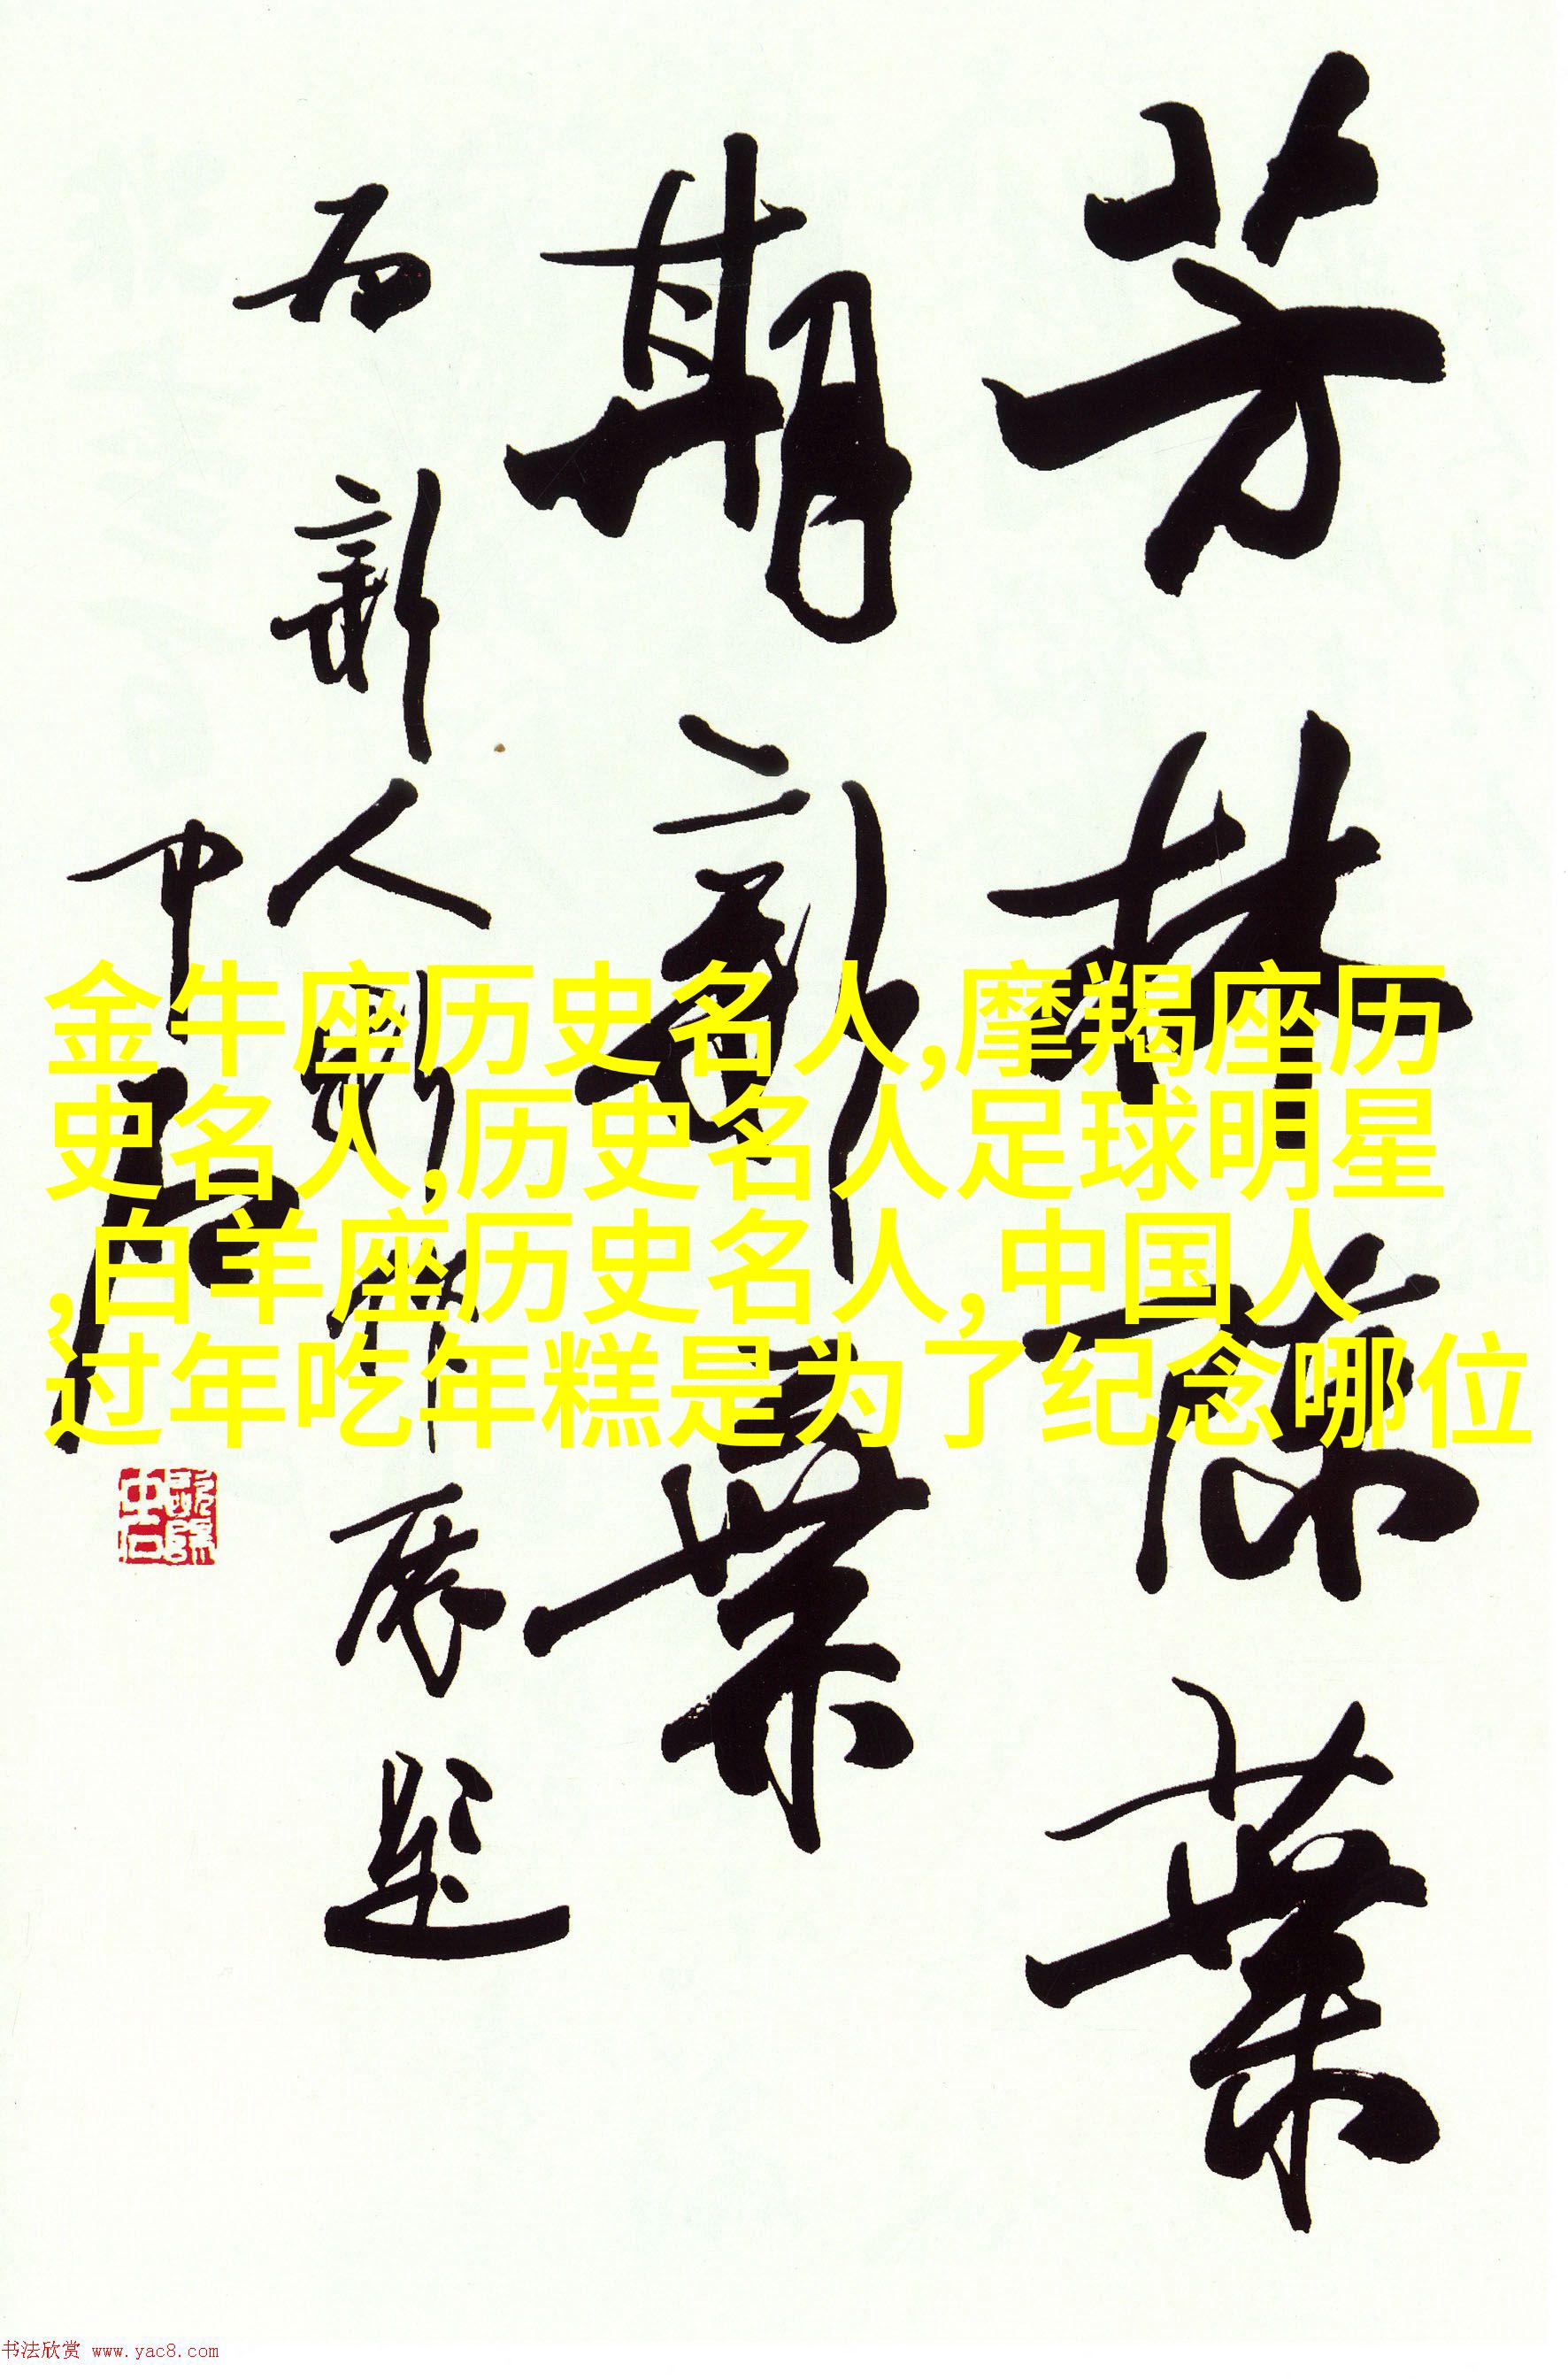 芳林陈叶
期新叶
为新人新作展题
中石
金牛座历史名人,摩羯座历
史名人,历史名人足球明星
,白羊座历史名人,中国人
过年吃年糕是为了纪念哪位
书法欣赏 www.yac8.com